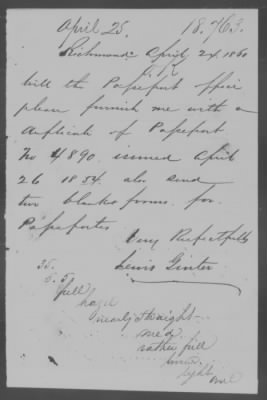 April 25. 18.763.
Richmond Va April 24 1860
Will the Passport office
please furnish me with a
Duplicate of Passport
No 4890. issued April
26 1854. also send
two blank forms for
Passports
Very Respectfully
Lewis Ginter
35.
5.5
full
hazel
nearly straight
med
rather full
light
oval